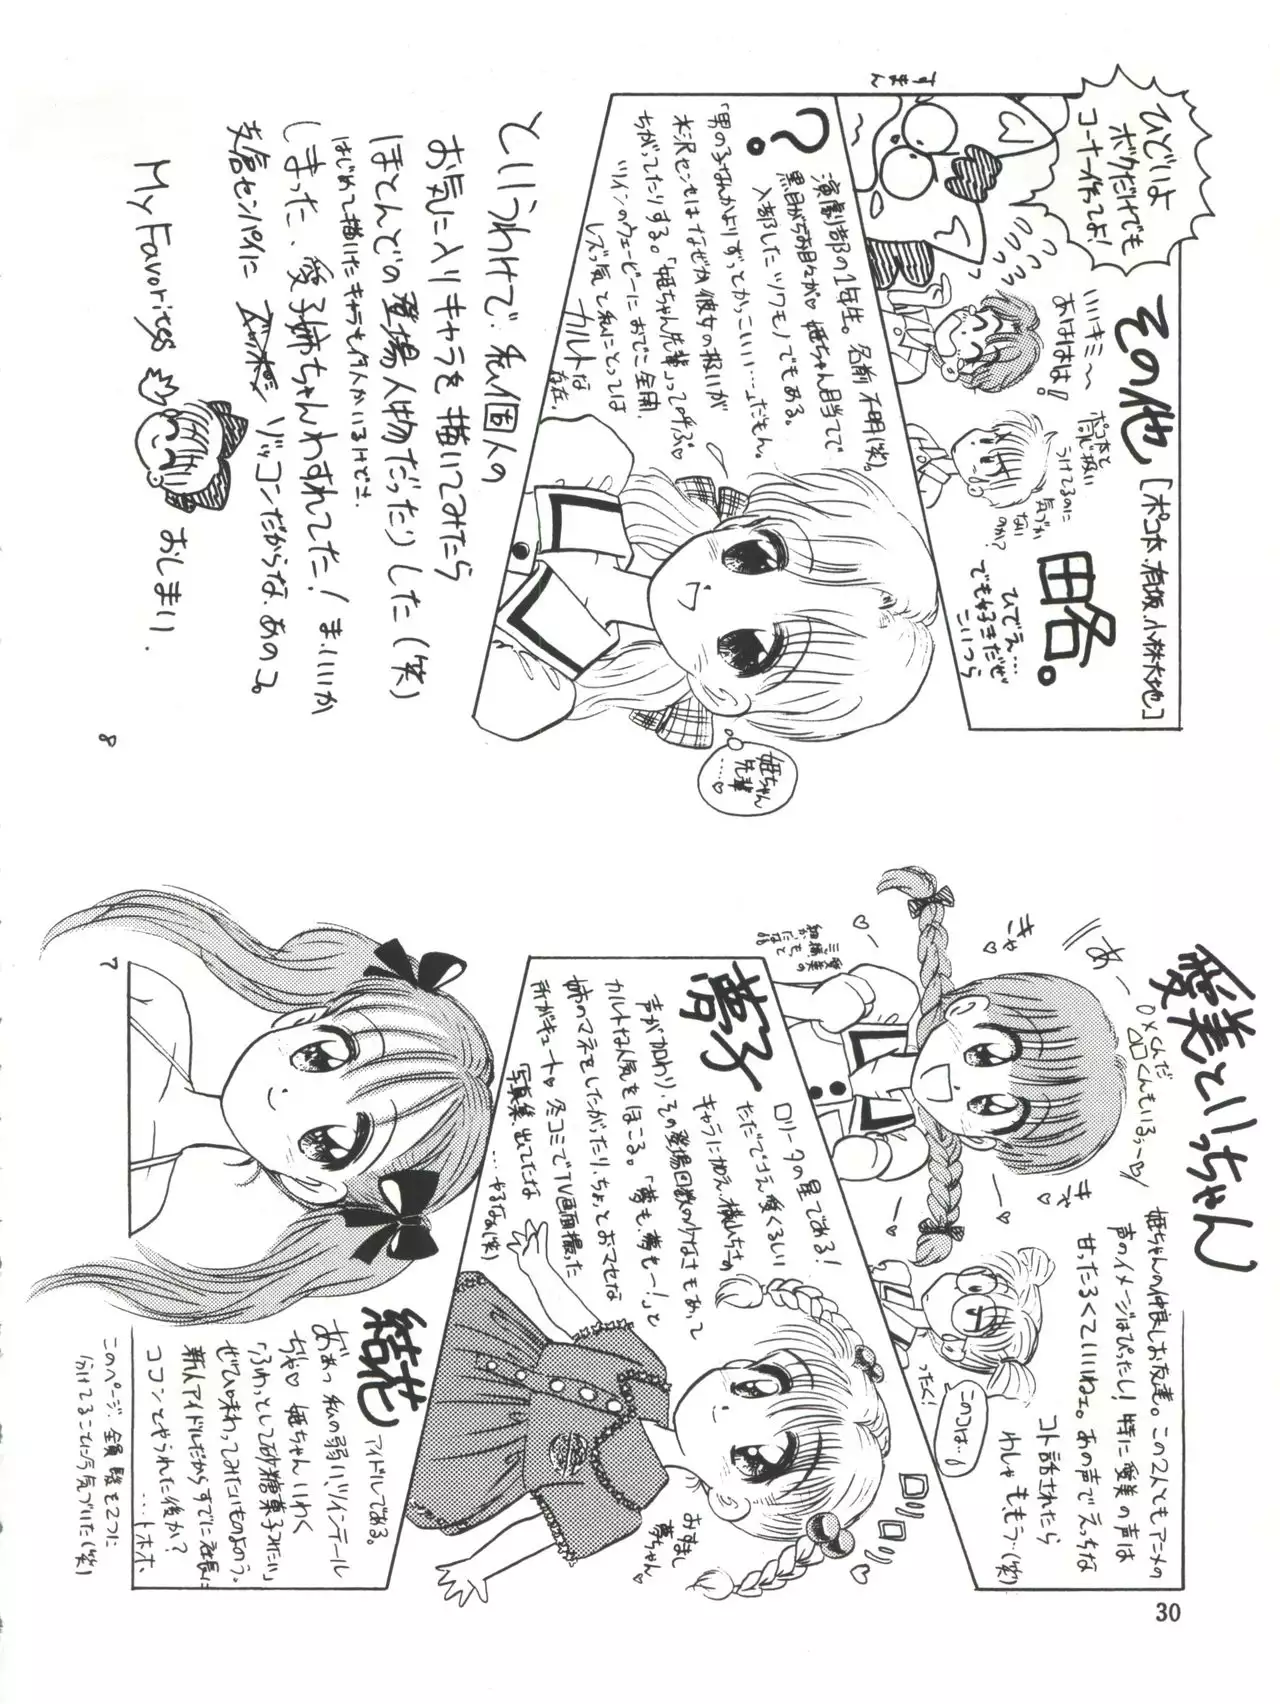 愛美といっちゃん
姫ちゃんの仲良しお友達。この2人ともアニメの
声のイメージはぴったし！特に愛美の声は
甘ったるくていいねェ。あの声でえっちな
コト話されたら
わしゃももう…(笑)
あー
○×くんだ
△□くんもいるぅ〜♡
きゃ
きゃ
このコは…！
ったく！
夢子
ロリータの星である！
ただでさえ愛くるしい
キャラに加え、横山ちさの
声が加わり、その登場回数の少なさもあって
カルトな人気をほこる。「夢も、夢も〜！」と
姉のマネをしたがったり、ちょっとおマセな
所がキュート♡冬コミでTV画面撮った
写真集、出てたな
…やるなぁ(笑)
ロリ
ロリ
おすまし
夢ちゃん♡
結花
アイドルである。
おぉっ 私の弱いツインテール
ちゃん♡姫ちゃんいわく
「ふわっとして砂糖菓子みたい」
ぜひ味わってみたいものよのう。
新人アイドルだからすでに社長に
コンコンとやられた後か？
…トホホ、
このページ、全員髪を2つに
分けてることに今気づいた(笑)
7
30
その他
[ポコ太、有坂、小林大地]
略。
ひどいよ
ボクだけでも
コーナー作ってよ！
すまん
いいキミ〜
あははは！
ポコ太と
同じ扱い
うけてるのに
気づか
ないのか？
ひでえ…
でも好きだぜ
こいつら
？
演劇部の1年生。名前不明(笑)。
黒目がちなお目々が♡姫ちゃん目当てで
入部したツワモノでもある。
「男の子なんかよりずっとかっこいい…」だもん。
水沢センセはなぜか彼女の扱いが
ちがってたりする。「姫ちゃん先輩」って呼ぶ♡
ツインのウェービーにおでこ全開、
レズっ気と私にとっては
カルトな
存在。
姫ちゃん
先輩
…♡
というわけで、私個人の
お気に入りキャラを描いてみたら
ほとんどの登場人物だったりした(笑)
はじめて描いたキャラも何人かいるけどさ
しまった、愛子姉ちゃんわすれてた！ま、いいか
支倉センパイに ゾッコンだからな、あのコ。
My Favoritess おしまい.
8